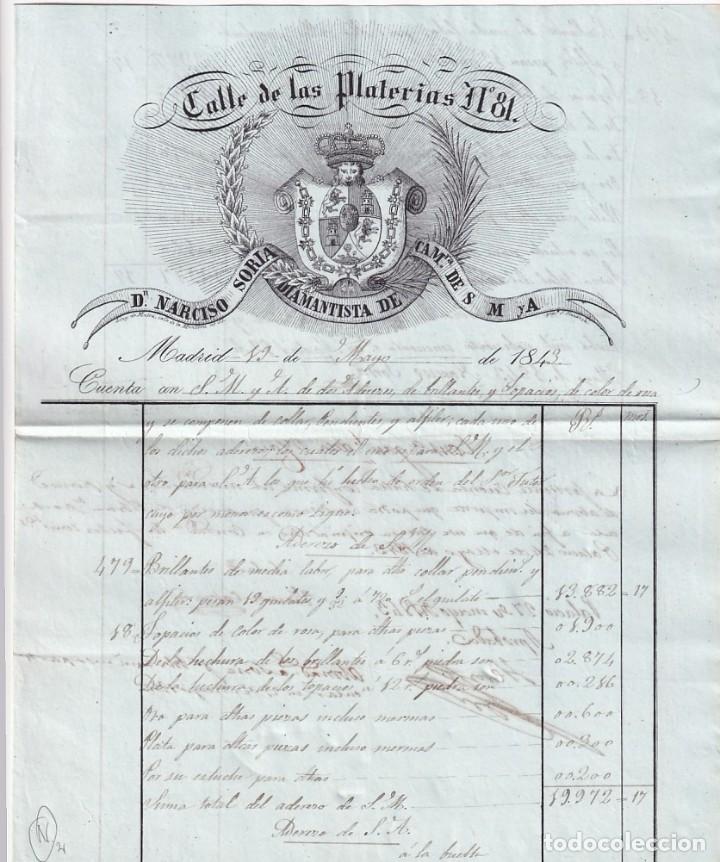 Calle de las Platerias Nº 81.
Dn. NARCISO SORIA DIAMANTISTA DE CAMra. DE S M y A
Madrid 13 de Mayo de 1843
Cuenta con S. M. y A. de dos Aderezos, de brillantes y topacios, de color de rosa
y se componen de collar, Pendientes y alfiler, cada uno de Rs. mrs.
los dichos aderezos, los cuales el uno para S. M. y el
otro para S. A. lo que fue hecho de orden del Sor. Tutor
cuyo por menor es como sigue.
Aderezo de S. M.
479 = Brillantes de media labor, para dho collar pendien.s y
alfiler: pesan 19 quilates, y a 720 el quilate 13.882 = 17
18 Topacios de color de rosa, para dhas piezas 01.900
De la hechura de los brillantes á 6 rs. piedra son 02.874
De la hechura de los topacios á 12 rs. piedra son 00.216
Oro para dhas piezas incluso mermas 00.600
Plata para dhas piezas incluso mermas 00.300
Por su estuche para dhas 00.200
Suma total del aderezo de S. M. 19.972 = 17
Aderezo de S. A.
á la buelta
N
todocoleccion